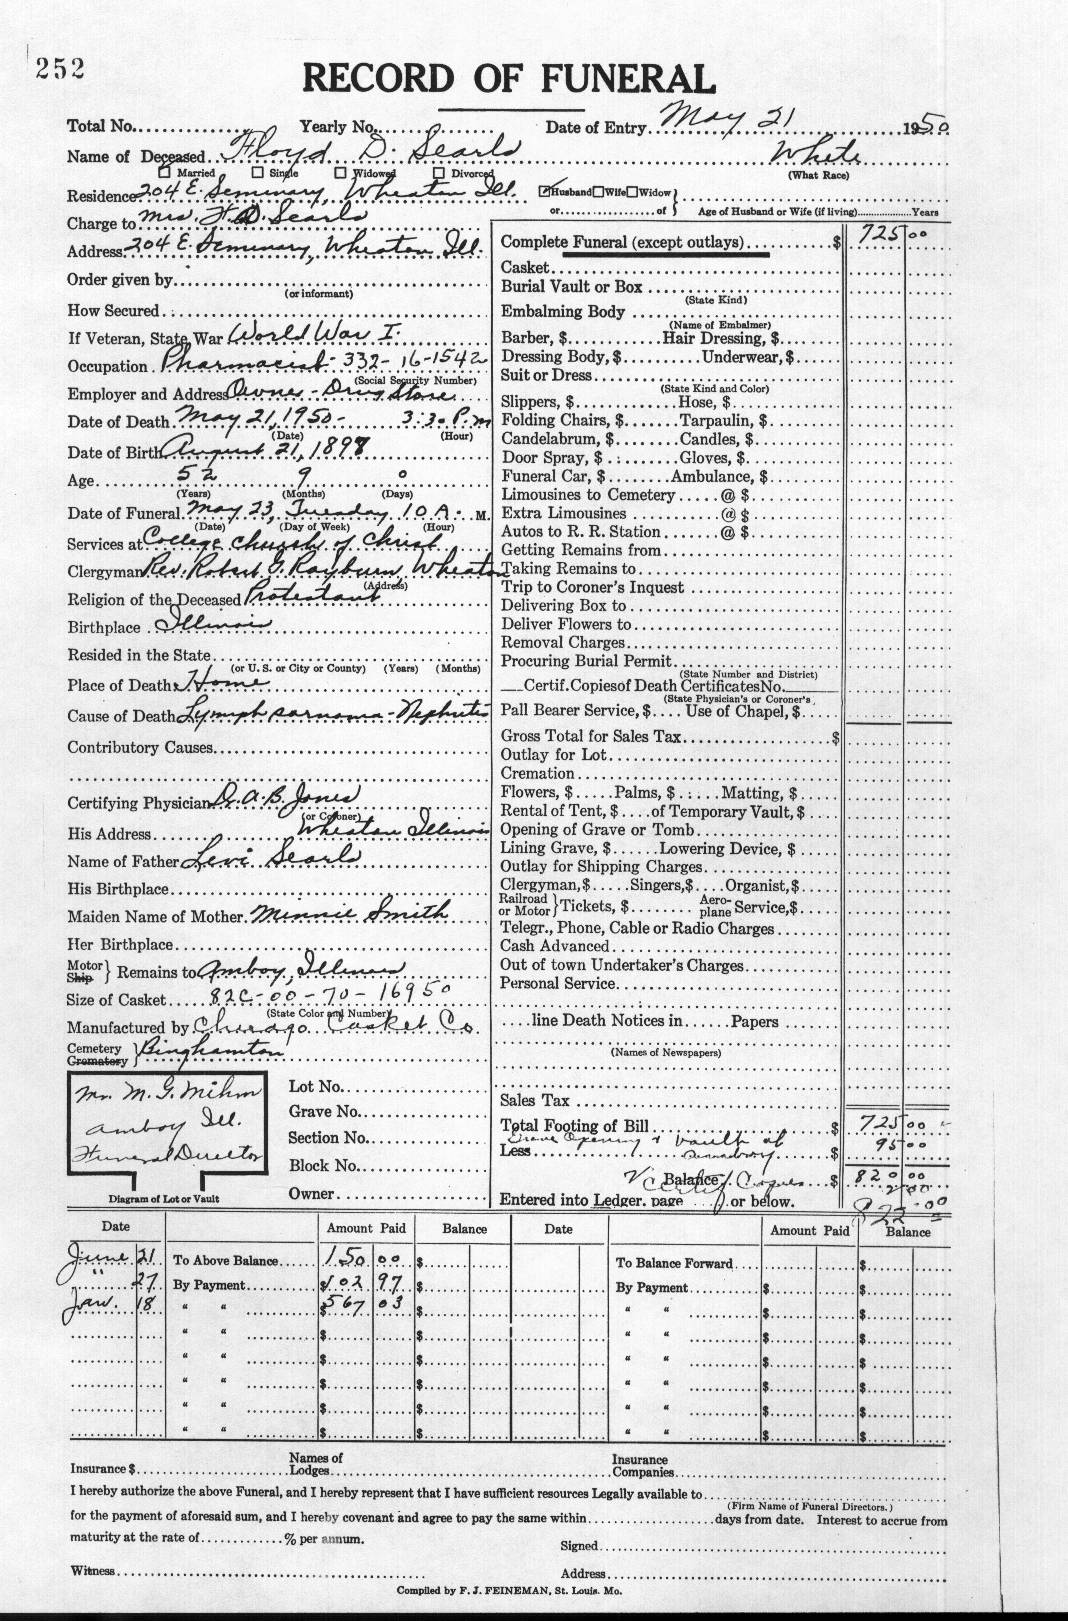 252
RECORD OF FUNERAL
Total No. Yearly No. Date of Entry May 21 1950
Name of Deceased Floyd D. Searls White
Married Single Widowed Divorced (What Race)
Residence 204 E. Seminary, Wheaton Ill. Husband Wife Widow
or of Age of Husband or Wife (if living) Years
Charge to Mrs. F. D. Searls
Address 204 E. Seminary, Wheaton, Ill.
Order given by
(or informant)
How Secured
If Veteran, State War World War I.
Occupation Pharmacist - 332-16-1542
(Social Security Number)
Employer and Address Owner - Drug Store
Date of Death May 21, 1950 - 3:30 P.m
(Date) (Hour)
Date of Birth August 21, 1897
Age 52 9 0
(Years) (Months) (Days)
Date of Funeral May 23, Tuesday 10 A. M.
(Date) (Day of Week) (Hour)
Services at College Church of Christ
Clergyman Rev. Robert G. Rayburn, Wheaton
(Address)
Religion of the Deceased Protestant
Birthplace Illinois
Resided in the State
(or U. S. or City or County) (Years) (Months)
Place of Death Home
Cause of Death Lymph sarcoma - Nephritis
Contributory Causes
Certifying Physician Dr. A. B. Jones
(or Coroner)
His Address Wheaton Illinois
Name of Father Levi Searls
His Birthplace
Maiden Name of Mother Minnie Smith
Her Birthplace
Motor
Ship } Remains to Amboy, Illinois
Size of Casket 82C-00-70-16950
(State Color and Number)
Manufactured by Chicago Casket Co.
Cemetery
Crematory } Binghamton
Mr. M. G. Mihm
Amboy Ill.
Funeral Director
Diagram of Lot or Vault
Lot No.
Grave No.
Section No.
Block No.
Owner
Complete Funeral (except outlays) $ 725 00
Casket
Burial Vault or Box
(State Kind)
Embalming Body
(Name of Embalmer)
Barber, $ Hair Dressing, $
Dressing Body, $ Underwear, $
Suit or Dress
(State Kind and Color)
Slippers, $ Hose, $
Folding Chairs, $ Tarpaulin, $
Candelabrum, $ Candles, $
Door Spray, $ Gloves, $
Funeral Car, $ Ambulance, $
Limousines to Cemetery @ $
Extra Limousines @ $
Autos to R. R. Station @ $
Getting Remains from
Taking Remains to
Trip to Coroner's Inquest
Delivering Box to
Deliver Flowers to
Removal Charges
Procuring Burial Permit
(State Number and District)
Certif. Copies of Death Certificates No.
(State Physician's or Coroner's
Pall Bearer Service, $ Use of Chapel, $
Gross Total for Sales Tax $
Outlay for Lot
Cremation
Flowers, $ Palms, $ Matting, $
Rental of Tent, $ of Temporary Vault, $
Opening of Grave or Tomb
Lining Grave, $ Lowering Device, $
Outlay for Shipping Charges
Clergyman, $ Singers, $ Organist, $
Railroad
or Motor } Tickets, $ Aero-
plane Service, $
Telegr., Phone, Cable or Radio Charges
Cash Advanced
Out of town Undertaker's Charges
Personal Service
line Death Notices in Papers
(Names of Newspapers)
Sales Tax
Total Footing of Bill $ 725 00
Grave Opening & Vault at
Less $ 95 00
Balance $ 820 00
Copies 2 00
Entered into Ledger, page or below. 822 00
Date Amount Paid Balance Date Amount Paid Balance
June 21 To Above Balance 150 00 $ To Balance Forward $
" 27 By Payment $ 102 97 $ By Payment $ $
Jan. 18 " " $ 567 03 $ " " $ $
" " $ $ " " $ $
" " $ $ " " $ $
" " $ $ " " $ $
" " $ $ " " $ $
" " $ $ " " $ $
Insurance $ Names of
Lodges Insurance
Companies
I hereby authorize the above Funeral, and I hereby represent that I have sufficient resources Legally available to
(Firm Name of Funeral Directors.)
for the payment of aforesaid sum, and I hereby covenant and agree to pay the same within days from date. Interest to accrue from
maturity at the rate of % per annum.
Signed
Witness Address
Compiled by F. J. FEINEMAN, St. Louis. Mo.